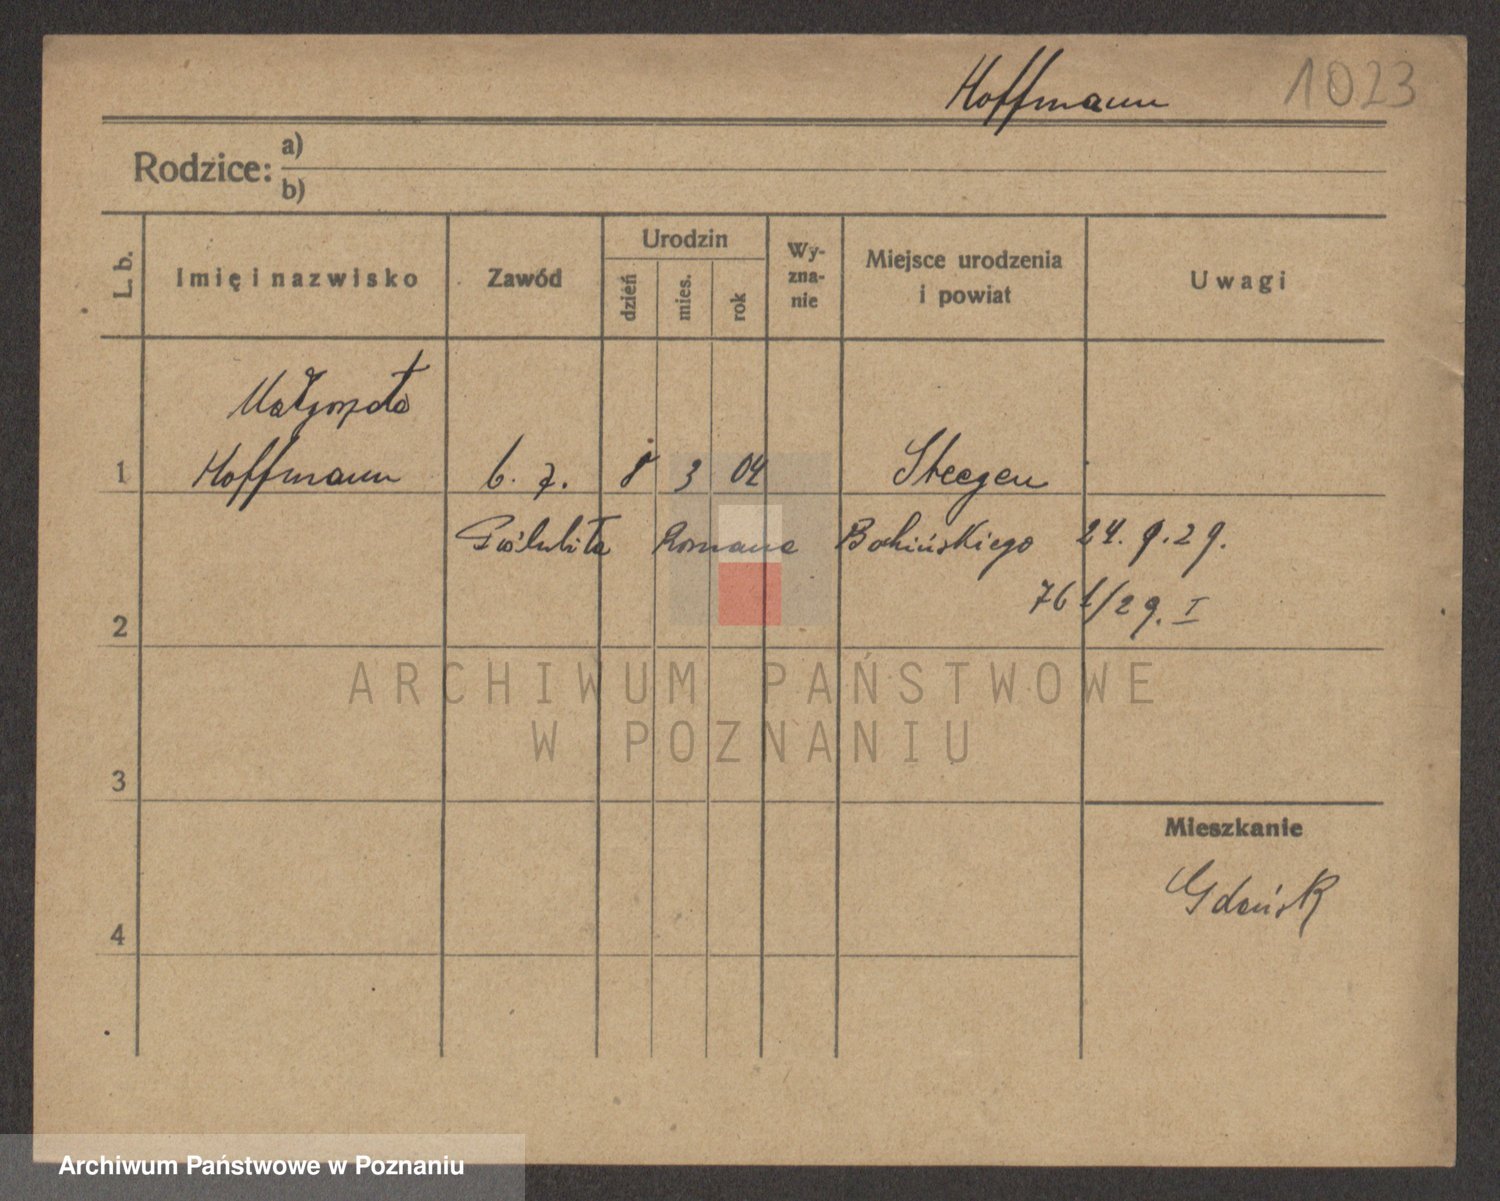 Hoffmann 1023
Rodzice: a)
b)
L. b. Imię i nazwisko Zawód Urodzin dzień mies. rok Wy-zna-nie Miejsce urodzenia i powiat Uwagi
Małgorzata
1 Hoffmann b. z. 8 3 04 Steegen
Poślubiła Romana 24. 9. 29.
2 761/29. I
ARCHIWUM PAŃSTWOWE
W POZNANIU
3
Mieszkanie
Gdańsk
4
Archiwum Państwowe w Poznaniu